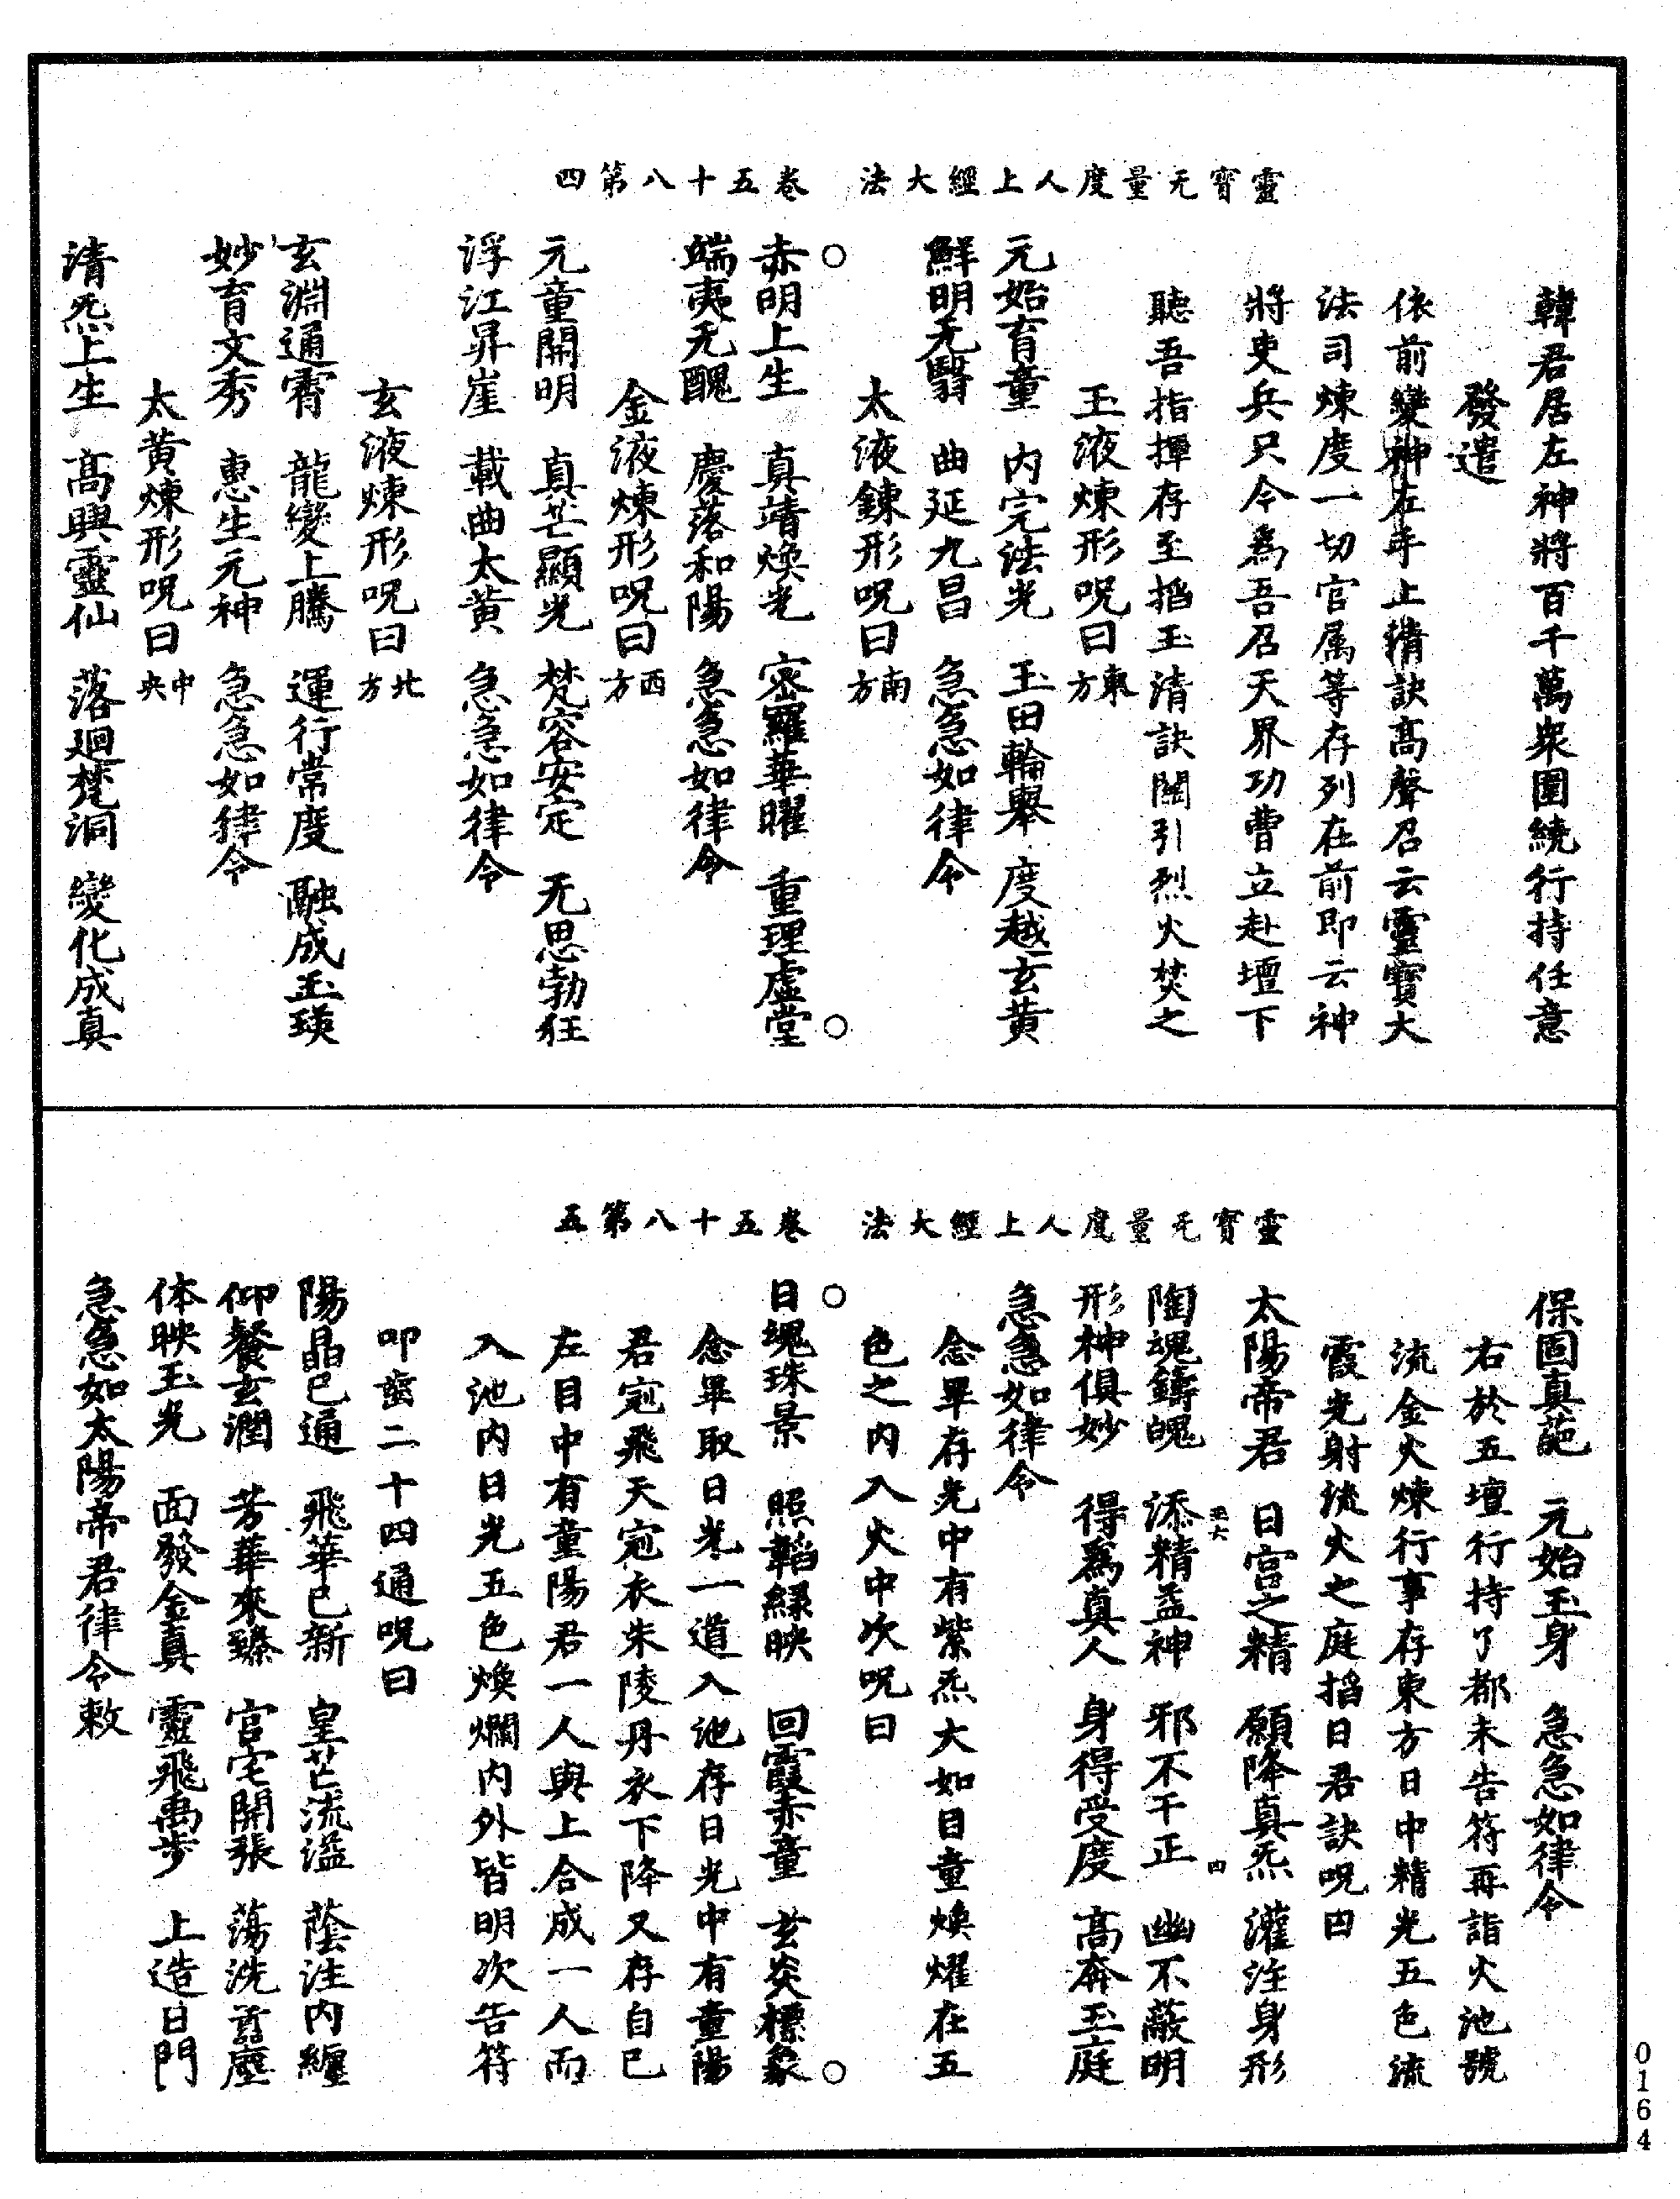 靈寶无量度人上經大法　卷五十八第四
韓君居左神將百千萬衆圍繞行持任意
發遣
依前變神左手上清訣高聲召云靈寶大
法司煉度一切官属等存列在前即云神
將吏兵只今爲吾召天界功曹立赴壇下
聽吾指揮存至搯玉清訣閤引烈火焚之
玉液煉形呪曰東方
元始育童　内完法光　玉田輪舉　度越玄黄
鮮明无翳　曲延九昌　急急如律令
太液鍊形呪曰南方
赤明上生　真靖煥光　宻羅華曜　重理虛堂
端夷无醜　慶落和陽　急急如律令
金液煉形呪曰西方
元童開明　真芒顯光　梵容安定　无思勃狂
浮江昇崖　載曲太黄　急急如律令
玄液煉形呪曰北方
玄淵通霄　龍變上騰　運行常度　融成玉瑛
妙育文秀　惠生元神　急急如律令
太黄煉形呪曰中央
清炁上生　高興靈仙　落廻梵洞　變化成真
靈寶无量度人上經大法　卷五十八第五
保固真葩　元始玉身　急急如律令
右於五壇行持了都未告符再詣火池號
流金火煉行事存東方日中精光五色流
霞光射流火之庭搯日君訣呪曰
太陽帝君　日宫之精　願降真炁　灌注身形
陶魂鑄魄　添精益神　邪不干正　幽不蔽明
形神俱妙　得爲真人　身得受度　高奔玉庭
急急如律令
念畢存光中有紫炁大如目童煥燿在五
色之内入火中次呪曰
日魂珠景　照韜緑映　回霞赤童　玄炎標象
念畢取日光一道入池存日光中有童陽
君冠飛天冠衣朱陵丹衣下降又存自已
左目中有童陽君一人與上合成一人而
入池内日光五色煥爛内外皆明次告符
叩齒二十四通呪曰
陽晶已通　飛華已新　皇芒流溢　蔭注内纏
仰餐玄潤　芳華來臻　宫宅開張　蕩洗嚣塵
体映玉光　面發金真　靈飛禹步　上造日門
急急如太陽帝君律令敕
0164